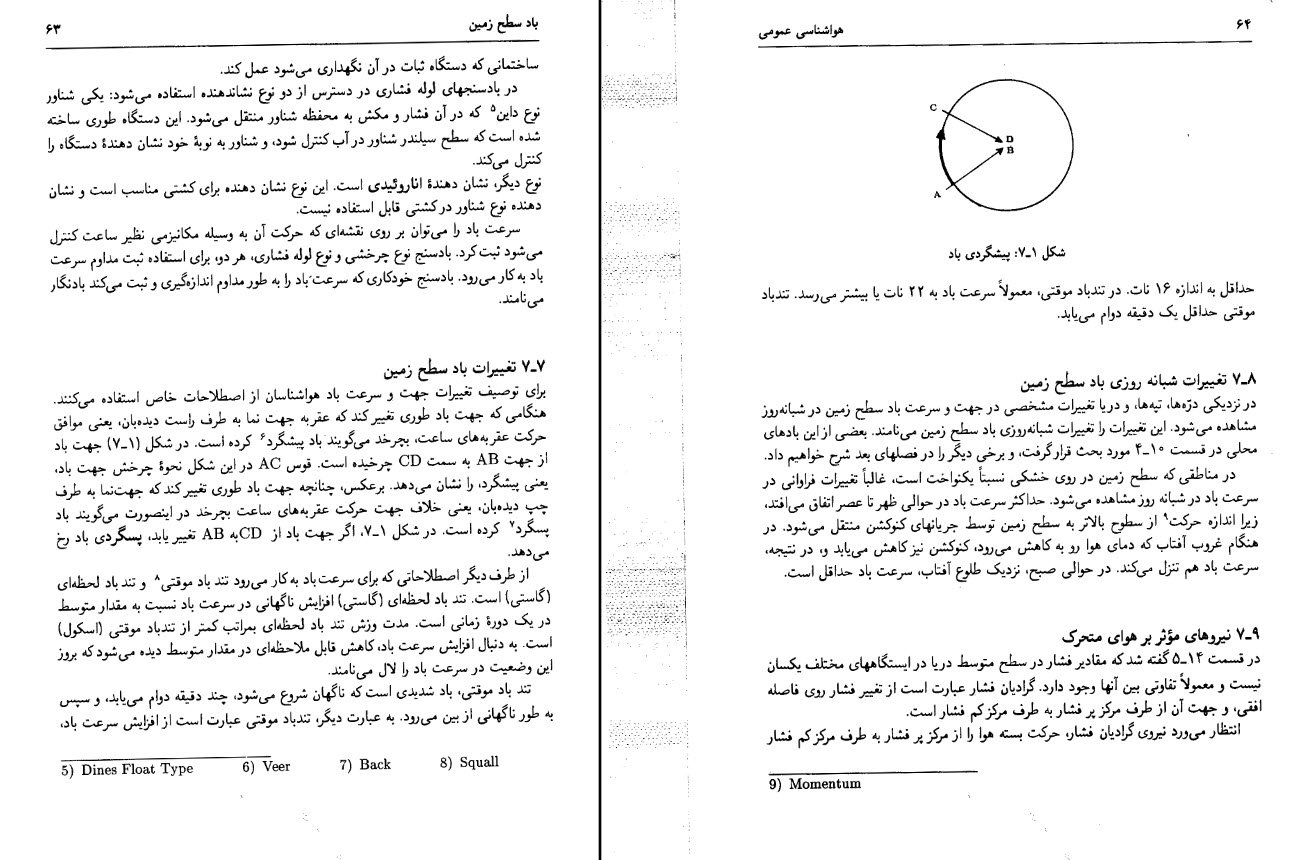 باد سطح زمین ۶۳
ساختمانی که دستگاه ثبات در آن نگهداری می‌شود عمل کند.
در بادسنجهای لوله فشاری در دسترس از دو نوع نشاندهنده استفاده می‌شود: یکی شناور
نوع داین۵ که در آن فشار و مکش به محفظه شناور منتقل می‌شود. این دستگاه طوری ساخته
شده است که سطح سیلندر شناور در آب کنترل شود، و شناور به نوبهٔ خود نشان دهندهٔ دستگاه را
کنترل می‌کند.
نوع دیگر، نشان دهندهٔ اناروئیدی است. این نوع نشان دهنده برای کشتی مناسب است و نشان
دهنده نوع شناور در کشتی قابل استفاده نیست.
سرعت باد را می‌توان بر روی نقشه‌ای که حرکت آن به وسیله مکانیزمی نظیر ساعت کنترل
می‌شود ثبت کرد. بادسنج نوع چرخشی و نوع لوله فشاری، هر دو، برای استفاده ثبت مداوم سرعت
باد به کار می‌رود. بادسنج خودکاری که سرعت باد را به طور مداوم اندازه‌گیری و ثبت می‌کند بادنگار
می‌نامند.
۷ـ۷ تغییرات باد سطح زمین
برای توصیف تغییرات جهت و سرعت باد هواشناسان از اصطلاحات خاص استفاده می‌کنند.
هنگامی که جهت باد طوری تغییر کند که عقربه جهت نما به طرف راست دیده‌بان، یعنی موافق
حرکت عقربه‌های ساعت، بچرخد می‌گویند باد پیشگرد۶ کرده است. در شکل (۱ـ۷) جهت باد
از جهت AB به سمت CD چرخیده است. قوس AC در این شکل نحوهٔ چرخش جهت باد،
یعنی پیشگرد، را نشان می‌دهد. برعکس، چنانچه جهت باد طوری تغییر کند که جهت‌نما به طرف
چپ دیده‌بان، یعنی خلاف جهت حرکت عقربه‌های ساعت بچرخد در اینصورت می‌گویند باد
پسگرد۷ کرده است. در شکل ۱ـ۷، اگر جهت باد از CD به AB تغییر یابد، پسگردی باد رخ
می‌دهد.
از طرف دیگر اصطلاحاتی که برای سرعت باد به کار می‌رود تند باد موقتی۸ و تند باد لحظه‌ای
(گاستی) است. تند باد لحظه‌ای (گاستی) افزایش ناگهانی در سرعت باد نسبت به مقدار متوسط
در یک دورهٔ زمانی است. مدت وزش تند باد لحظه‌ای بمراتب کمتر از تندباد موقتی (اسکول)
است. به دنبال افزایش سرعت باد، کاهش قابل ملاحظه‌ای در مقدار متوسط دیده می‌شود که بروز
این وضعیت در سرعت باد را لال می‌نامند.
تند باد موقتی، باد شدیدی است که ناگهان شروع می‌شود، چند دقیقه دوام می‌یابد، و سپس
به طور ناگهانی از بین می‌رود. به عبارت دیگر، تندباد موقتی عبارت است از افزایش سرعت باد،
5) Dines Float Type 6) Veer 7) Back 8) Squall
۶۴ هواشناسی عمومی
C
D
B
A
شکل ۱ـ۷: پیشگردی باد
حداقل به اندازه ۱۶ نات. در تندباد موقتی، معمولاً سرعت باد به ۲۲ نات یا بیشتر می‌رسد. تندباد
موقتی حداقل یک دقیقه دوام می‌یابد.
۸ـ۷ تغییرات شبانه روزی باد سطح زمین
در نزدیکی درّه‌ها، تپه‌ها، و دریا تغییرات مشخصی در جهت و سرعت باد سطح زمین در شبانه‌روز
مشاهده می‌شود. این تغییرات را تغییرات شبانه‌روزی باد سطح زمین می‌نامند. بعضی از این بادهای
محلی در قسمت ۱۰ـ۴ مورد بحث قرار گرفت، و برخی دیگر را در فصلهای بعد شرح خواهیم داد.
در مناطقی که سطح زمین در روی خشکی نسبتاً یکنواخت است، غالباً تغییرات فراوانی در
سرعت باد در شبانه روز مشاهده می‌شود. حداکثر سرعت باد در حوالی ظهر تا عصر اتفاق می‌افتد،
زیرا اندازه حرکت۹ از سطوح بالاتر به سطح زمین توسط جریانهای کنوکشن منتقل می‌شود. در
هنگام غروب آفتاب که دمای هوا رو به کاهش می‌رود، کنوکشن نیز کاهش می‌یابد و، در نتیجه،
سرعت باد هم تنزل می‌کند. در حوالی صبح، نزدیک طلوع آفتاب، سرعت باد حداقل است.
۹ـ۷ نیروهای مؤثر بر هوای متحرک
در قسمت ۱۴ـ۵ گفته شد که مقادیر فشار در سطح متوسط دریا در ایستگاههای مختلف یکسان
نیست و معمولاً تفاوتی بین آنها وجود دارد. گرادیان فشار عبارت است از تغییر فشار روی فاصله
افقی، و جهت آن از طرف مرکز پر فشار به طرف مرکز کم فشار است.
انتظار می‌ورد نیروی گرادیان فشار، حرکت بسته هوا را از مرکز پر فشار به طرف مرکز کم فشار
9) Momentum